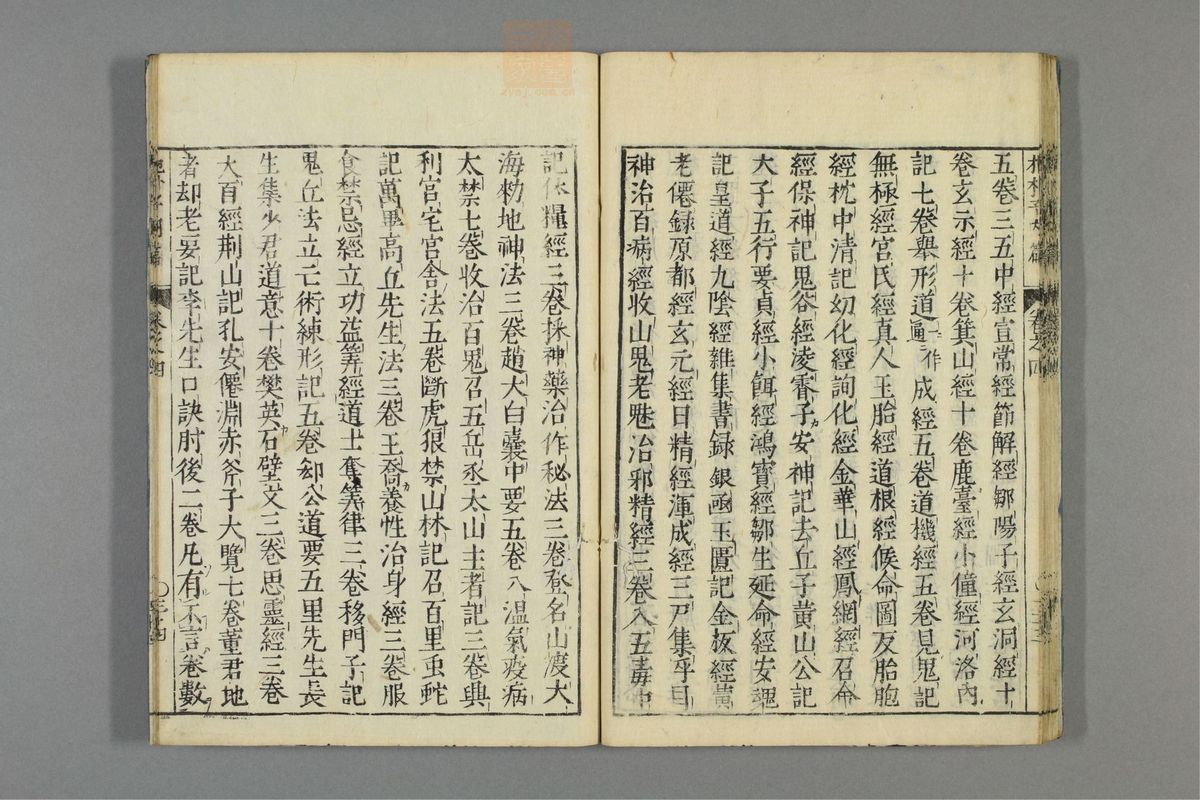 五卷三五中經宣常經節解經鄒陽子經玄洞經十
卷玄示經十卷箕山經十卷鹿臺經小僮經河洛內
記七卷舉形道一作遍成經五卷道機經五卷見鬼記
無極經宮氏經真人玉胎經道根經候命圖反胎胞
經枕中清記幻化經詢化經金華山經鳳網經召命
經保神記鬼谷經凌霄子安神記去丘子黄山公記
大子五行要貞經小餌經鴻寶經鄒生延命經安魂
記皇道經九陰經雜集書録銀函玉匱記金板經黄
老僊録原都經玄元經日精經渾成經三尸集乎耳
神治百病經收山鬼老魅治邪精經三卷入五毒中
記休糧經三卷採神藥治作秘法三卷登名山渡大
海勑地神法三卷趙大白囊中要五卷入温氣疫病
太禁七卷收治百鬼召五岳丞太山主者記三卷興
利宮宅宮舍法五卷斷虎狼禁山林記召百里虫蛇
記萬畢高丘先生法三卷王喬養性治身經三卷服
食禁忌經立功益筭經道士奪筭律三卷移門子記
鬼丘法立亡術練形記五卷郄公道要五里先生長
生集少君道意十卷樊英石壁文三卷思靈經三卷
大百經荆山記孔安僊淵赤斧子大覽七卷董君地
者却老要記李先生口訣肘後二卷凡有不言卷數